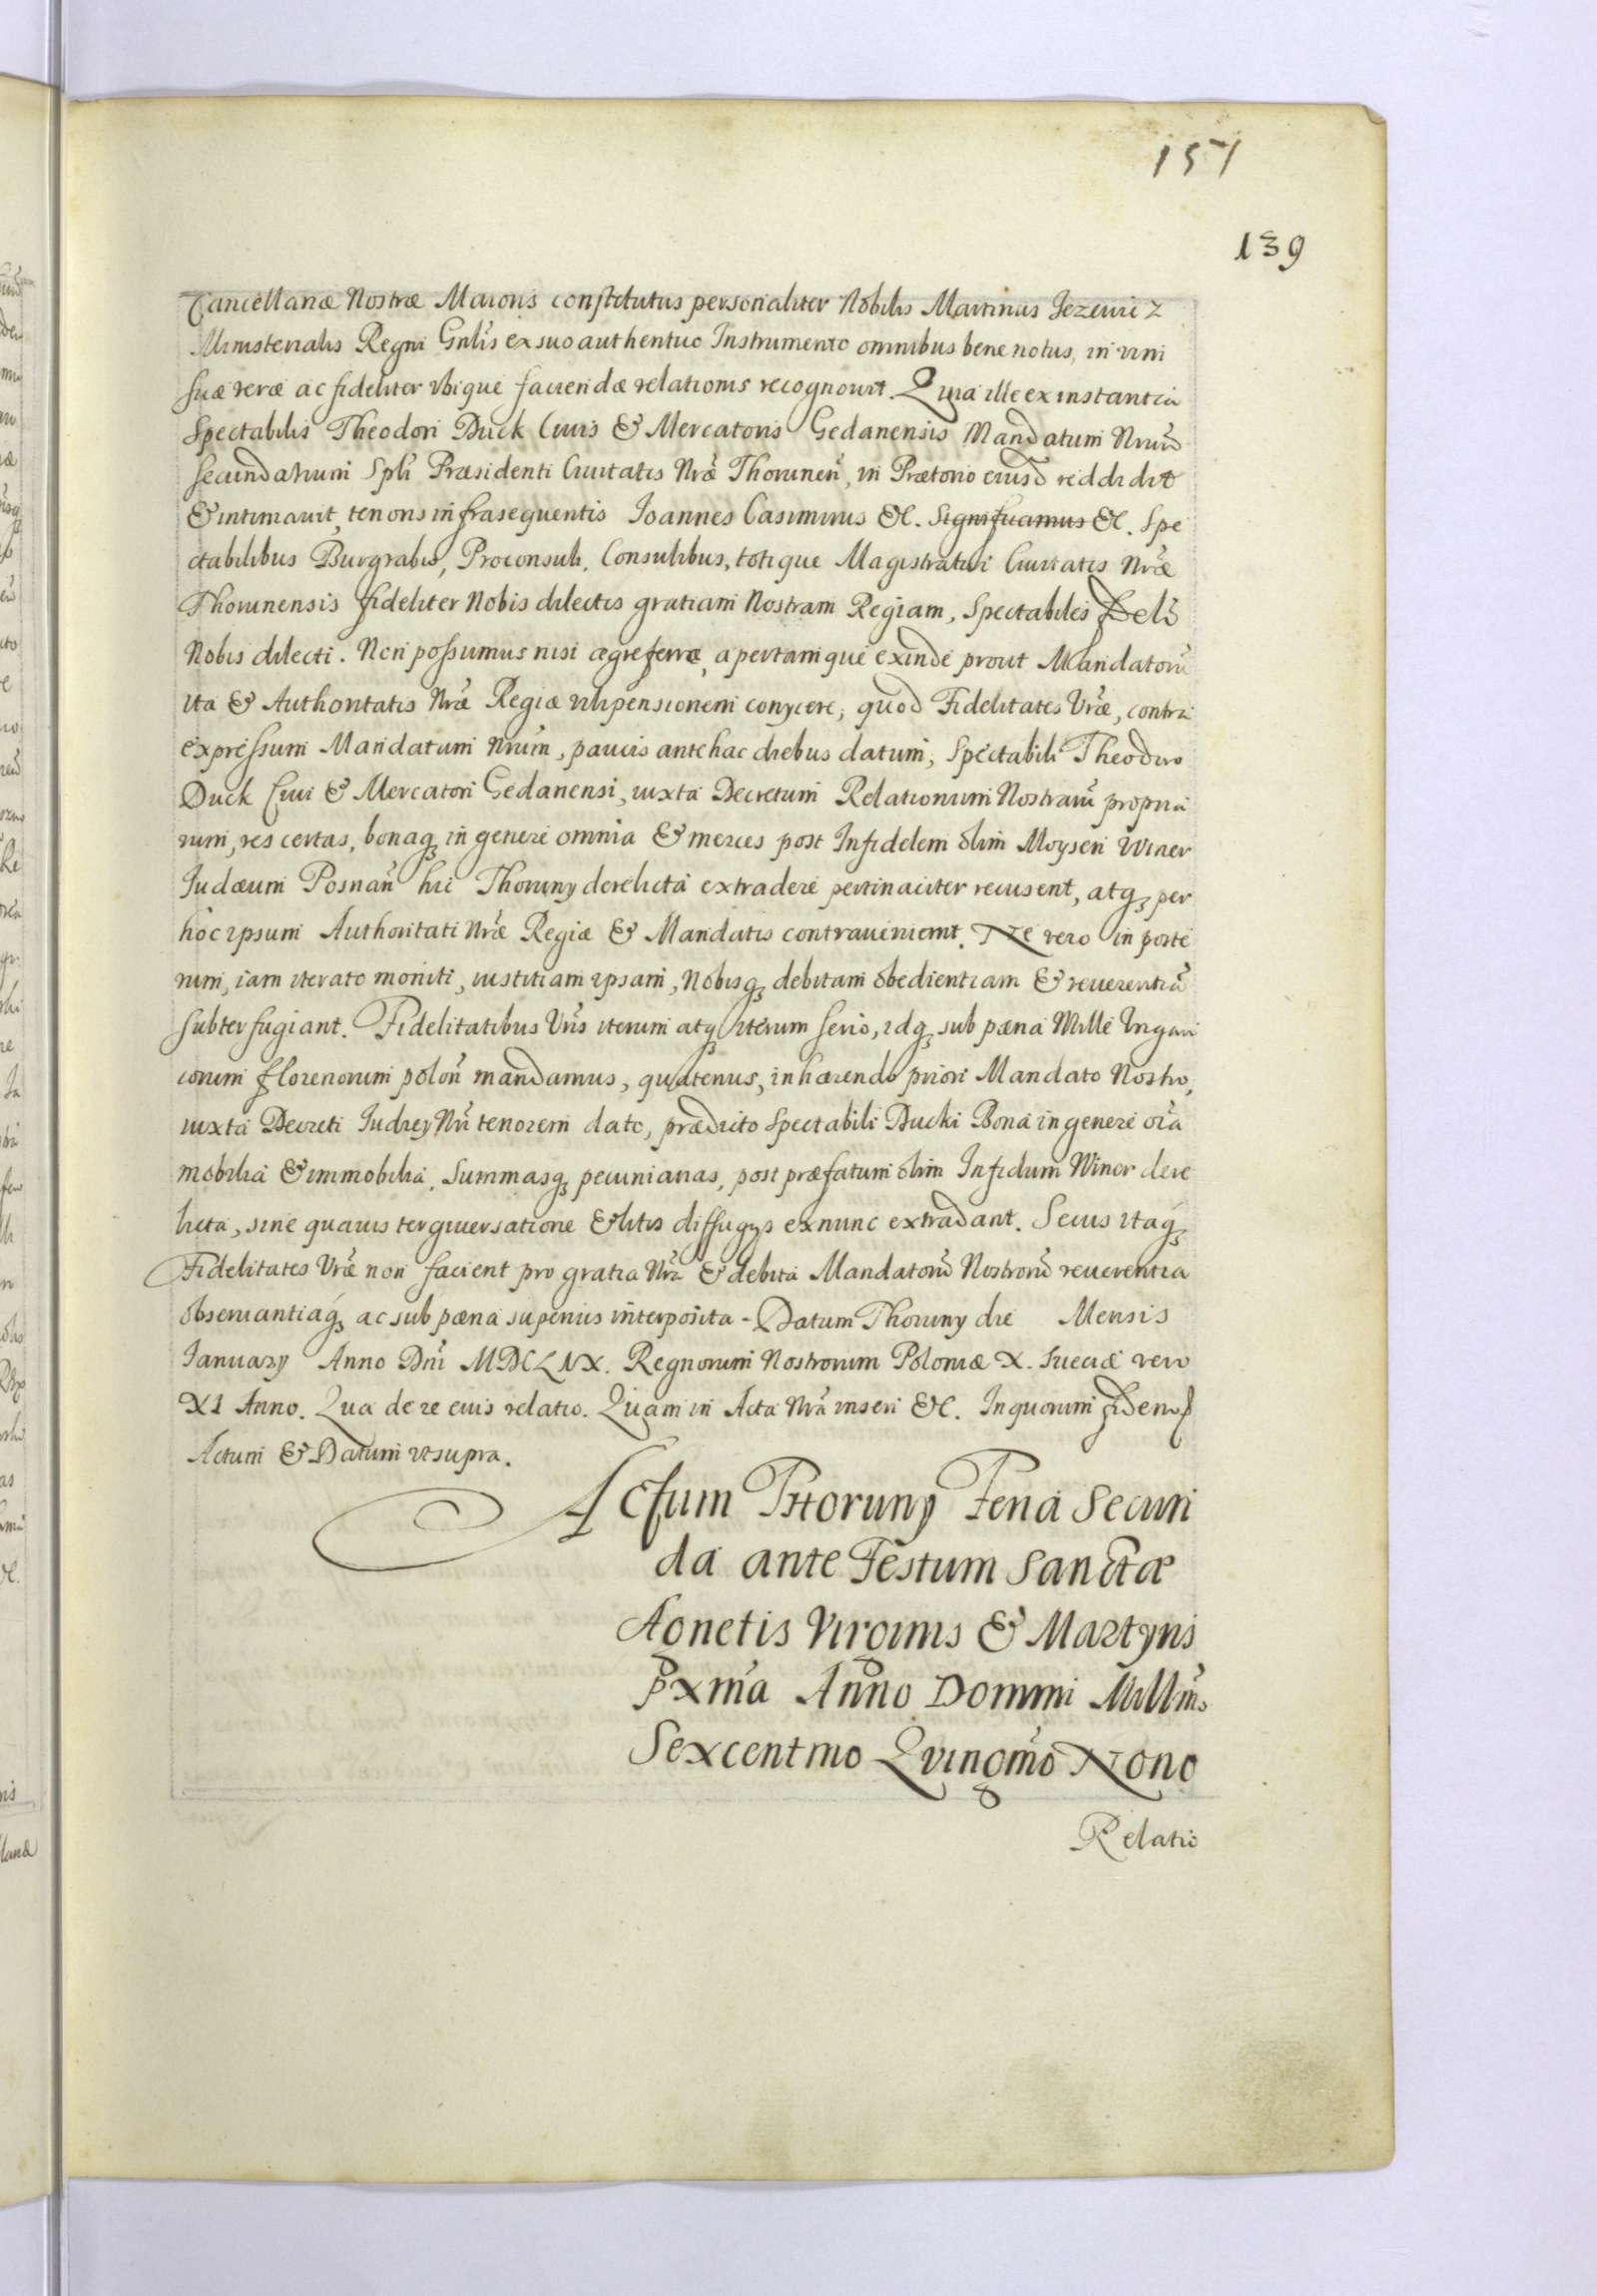 157
139
Cancellariæ Nostræ Maioris constitutus personaliter Nobilis Martinus Jezewicz
Ministerialis Regni Gnlis ex suo authentico Instrumento omnibus bene notus, in vim
suæ veræ ac fideliter vbique faciendæ relationis recognouit. Quia ille ex instantia
Spectabilis Theodori Duck Ciuis & Mercatoris Gedanensis Mandatum Nrum
secundarium Spli Præsidenti Ciuitatis Nræ Thorunen, in Prætorio eiusd reddidit
& intimauit, tenoris infrasequentis Joannes Casimirus &c. Significamus &c. Spe
ctabilibus Burgrabio, Proconsuli, Consulibus, totique Magistratui Ciuitatis Nræ
Thorunensis fideliter Nobis dilectis gratiam Nostram Regiam, Spectabiles Fels
Nobis dilecti. Non possumus nisi ægre ferre, apertamque exinde prout Mandatoru
ita & Authoritatis Nræ Regiæ vilipensionem conijcere, quod Fidelitates Vræ, contra
expressum Mandatum Nrum, paucis antehac diebus datum, Spectabili Theodoro
Duck Ciui & Mercatori Gedanensi, iuxta Decretum Relationum Nostraru propria
rum, res certas, bonaq in genere omnia & merces post Infidelem olim Moysen Winer
Judæum Posnan hic Thoruny derelicta extradere pertinaciter recusent, atq per
hoc ipsum Authoritati Nræ Regiæ & Mandatis contraueniant. Ne vero in poste
rum, iam iterato moniti, iustitiam ipsam, Nobisq debitam obedientiam & reuerentia
subterfugiant. Fidelitatibus Vris iterum atq iterum serio, idq sub pœna Mille Vngari
corum florenorum polon mandamus, quatenus, inhærendo priori Mandato Nostro,
iuxta Decreti Judicy Nri tenorem dato, prædicto Spectabili Ducki Bona in genere oia
mobilia & immobilia, summasq pecuniarias, post præfatum olim Infidum Winer dere
licta, sine quauis tergiuersatione & litis diffugijs ex nunc extradant. Secus itaq
Fidelitates Vræ non facient pro gratia Nra & debita Mandatoru Nostroru reuerentia
obseruantiaq ac sub pœna superius interposita - Datum Thoruny die Mensis
January Anno Dni MDCLIX. Regnorum Nostrorum Poloniæ X. Sueciæ vero
XI Anno. Qua de re eius relatio. Quam in Acta Nra inseri &c. In quorum fidem
Actum & Datum vt supra.
Actum Thoruny Feria Secun
da ante Festum Sanctæ
Agnetis Virginis & Martyris
pxma Anno Domini Millmo
Sexcentmo Qvinqgmo Nono
Relatio